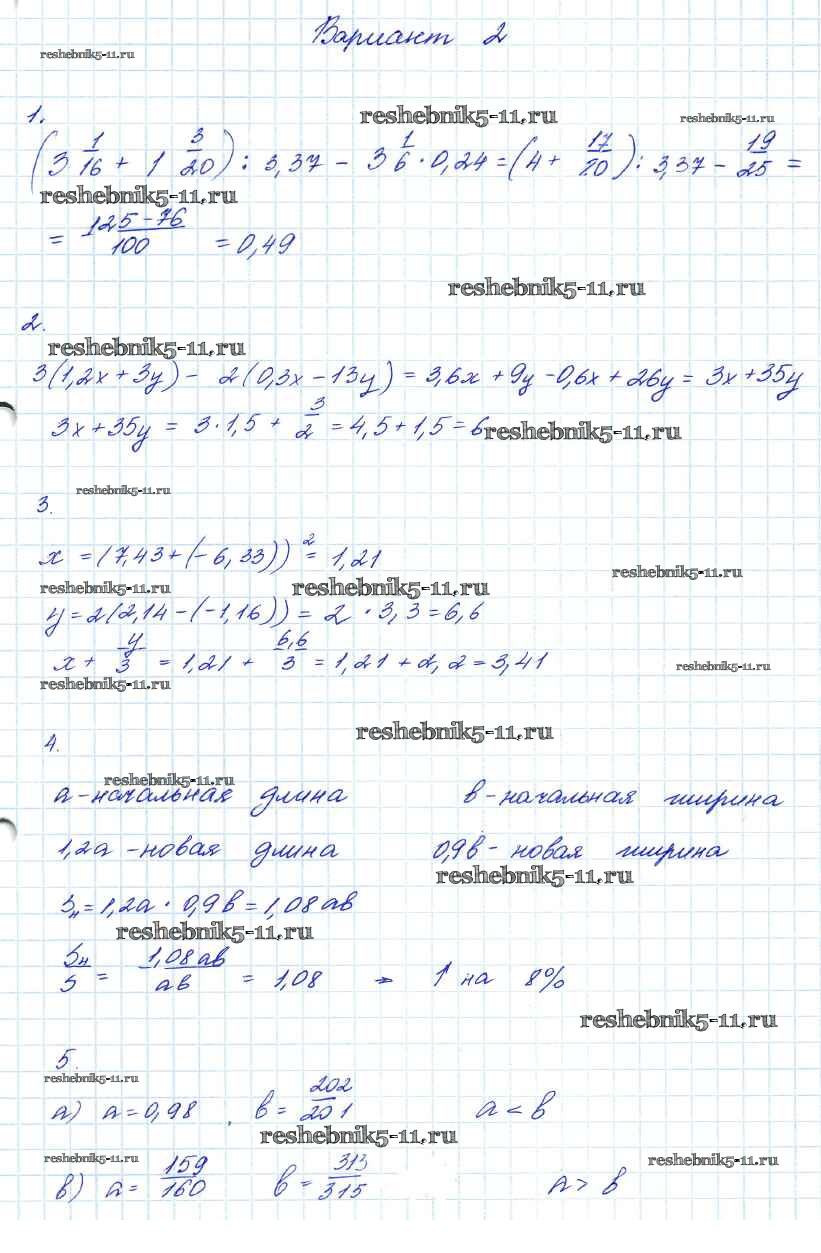 Вариант 2
reshebnik5-11.ru
1.
reshebnik5-11.ru
reshebnik5-11.ru
(3 1/16 + 1 3/20) : 3,37 - 3 1/6 · 0,24 = (4 + 17/80) : 3,37 - 19/25 =
reshebnik5-11.ru
= 125-76/100 = 0,49
reshebnik5-11.ru
2.
reshebnik5-11.ru
3(1,2x+3y) - 2(0,3x-13y) = 3,6x + 9y - 0,6x + 26y = 3x+35y
3x+35y = 3·1,5 + 3/2 = 4,5+1,5=6
reshebnik5-11.ru
reshebnik5-11.ru
3.
x = (7,43+(-6,33))² = 1,21
reshebnik5-11.ru
reshebnik5-11.ru
reshebnik5-11.ru
y=2(2,14-(-1,16)) = 2 · 3,3=6,6
x + y/3 = 1,21 + 6,6/3 = 1,21 + 2,2 = 3,41
reshebnik5-11.ru
reshebnik5-11.ru
4.
reshebnik5-11.ru
reshebnik5-11.ru
a - начальная длина в - начальная ширина
1,2a - новая длина 0,9в - новая ширина
reshebnik5-11.ru
Sн = 1,2a · 0,9в = 1,08ав
reshebnik5-11.ru
Sн/S = 1,08ав/ав = 1,08 → ↑ на 8%
reshebnik5-11.ru
5.
reshebnik5-11.ru
а) a=0,98 , в = 202/201 a < в
reshebnik5-11.ru
reshebnik5-11.ru
reshebnik5-11.ru
в) a = 159/160 в = 313/315 a > в